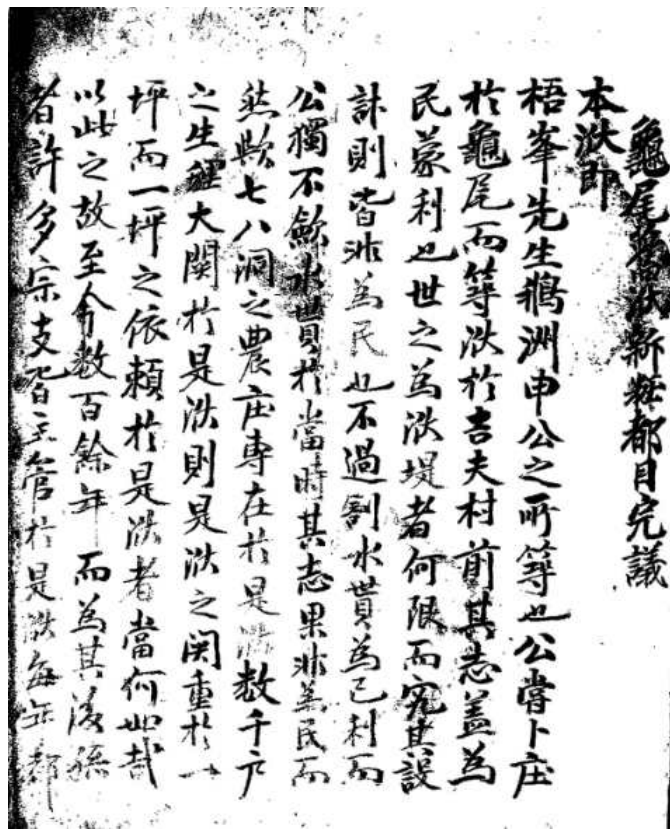 龜尾舊洑新粧都目完議
本洑即
梧峯先生鵝洲申公之所築也公嘗卜庄
於龜尾而築洑於吉夫村前其志盖為
民蒙利也世之為洑堤者何限而究其設
計則皆非為民也不過割水貰為己利而
公獨不歛水貰於當時其志果非為民而
然歟七八洞之農庄專在於是洑數千戶
之生理大關於是洑則是洑之関重於一
坪而一坪之依賴於是洑者當何如哉
以此之故至今数百餘年而為其後孫
者許多宗支皆主管於是洑每年都